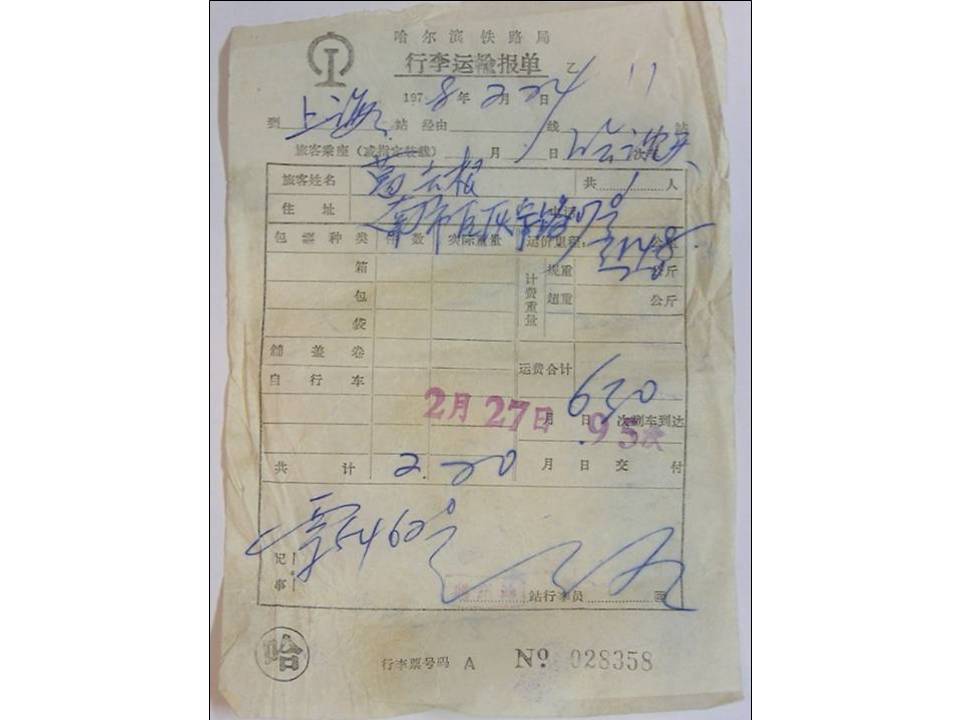 哈尔滨铁路局
行李运输报单 乙 11
1978年2月24日
到上海站 经由 线 站
旅客乘座(或指定装载) 月 日 次
旅客姓名 共1人
住址 南市区
包装种类 件数 实际重量 运价里程: 公里
箱 计费重量 规重 公斤
包 超重 公斤
袋
铺盖卷 运费合计
自行车 630
2月27日 月 日 95次 次列车到达
共计 2. 20 月 日交付
票5460
记事 站行李员
哈 行李票号码 A No 028358